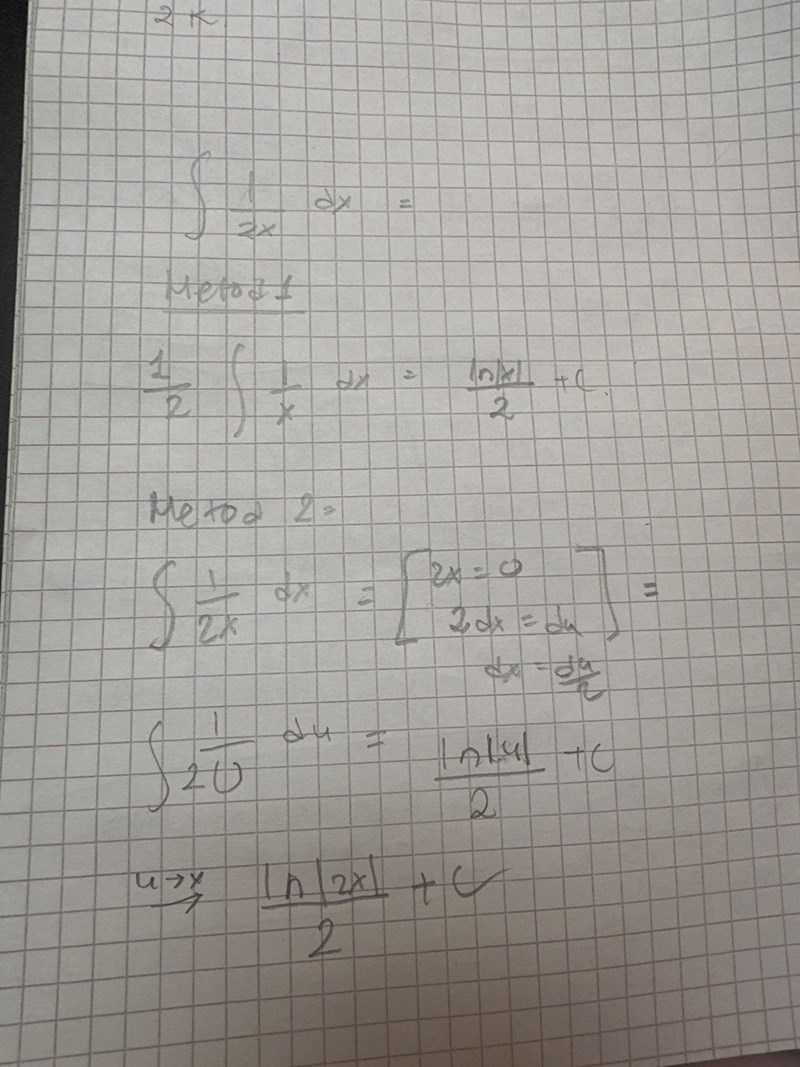 2 K
∫ 1/2x dx =
Metod 1
1/2 ∫ 1/x dx = ln|x|/2 + C.
Metod 2=
∫ 1/2x dx = [2x = U
2dx = du] =
dx = du/2
∫ 1/2U du = ln|u|/2 + C
u→x ln|2x|/2 + C